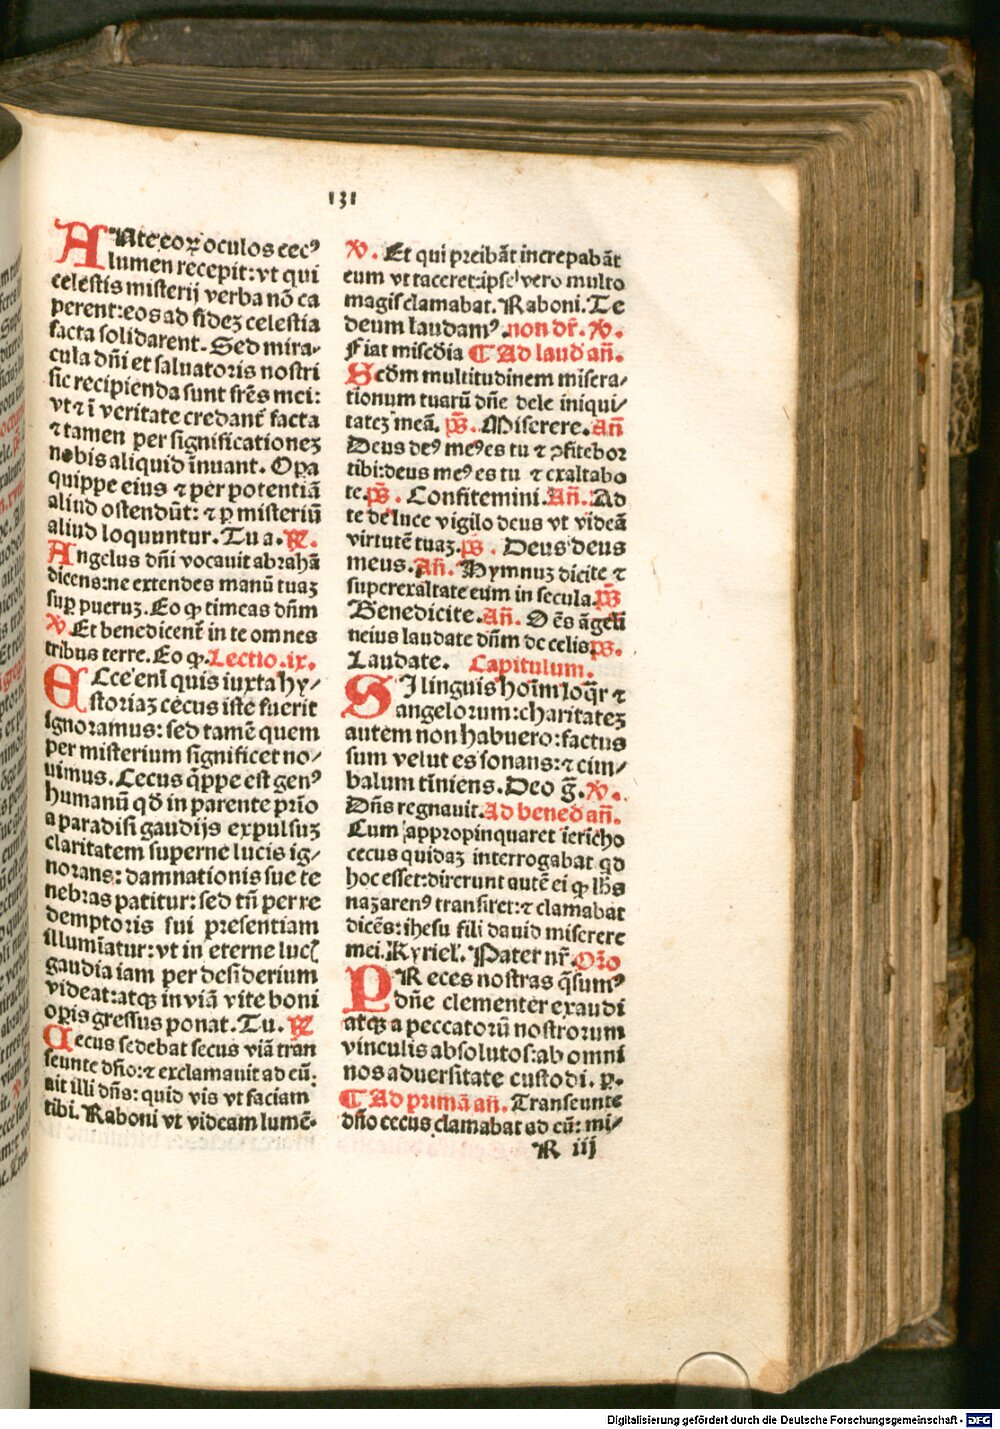 131
ANte eoꝝ oculos cecꝰ
lumen recepit: vt qui
celestis misterij verba nō ca
perent: eos ad fideꝫ celestia
facta solidarent. Sed mira-
cula dn̄i et saluatoris nostri
sic recipienda sunt frēs mei:
vt ⁊ ī veritate credant̄ facta
⁊ tamen per significationeꝫ
nobis aliquid īnuant. Oꝑa
quippe eius ⁊ per potentiā
aliud ostendūt: ⁊ ꝑ misteriū
aliud loquuntur. Tu a. ℟.
Angelus dn̄i vocauit abrahā
dicens: ne extendes manū tuaꝫ
suꝑ pueruꝫ. Eo ꝙ timeas dn̄m
℣. Et benedicent̄ in te omnes
tribus terre. Eo ꝙ. Lectio. ix.
ECce enī quis iuxta hy⸗
storiaꝫ cecus iste fuerit
ignoramus: sed tamē quem
per misterium significet no⸗
uimus. Cecus q̄ppe est genꝰ
humanū qď in parente prīo
a paradisi gaudijs expulsuꝫ
claritatem superne lucis ig⸗
norans: damnationis sue te
nebras patitur: sed tn̄ per re
demptoris sui presentiam
illumīatur: vt in eterne lucꝭ
gaudia iam per desiderium
videat: atqꝫ in viā vite boni
oꝑis gressus ponat. Tu. ℟
Cecus sedebat secus viā tran
seunte dn̄o: ⁊ exclamauit ad eū:
ait illi dn̄s: quid vis vt faciam
tibi. Raboni vt videam lumē.
℣. Et qui preibāt increpabāt
eum vt taceret: ipse vero multo
magis clamabat. Raboni. Te
deum laudamꝰ. non dr̄. ℣.
Fiat misc̄dia ¶ Ad laud añ.
Scd̄m multitudinem misera⸗
tionum tuarū dn̄e dele iniqui⸗
tateꝫ meā. p̄s. Miserere. Añ
Deus deꝰ meꝰ es tu ⁊ ꝯfitebor
tibi: deus meꝰ es tu ⁊ exaltabo
te. p̄s. Confitemini. Añ. Ad
te de luce vigilo deus vt videā
virtutē tuaꝫ. ps. Deus deus
meus. Añ. Hymnuꝫ dicite ⁊
superexaltate eum in secula. p̄s
Benedicite. Añ. Oēs āgeli
neius laudate dn̄m de celis. ps.
Laudate. Capitulum.
SI linguis hoīm loq̄r ⁊
angelorum: charitateꝫ
autem non habuero: factus
sum velut es sonans: ⁊ cim⸗
balum tīniens. Deo g̃. ℣.
Dn̄s regnauit. Ad bened añ.
Cum appropinquaret iericho
cecus quidaꝫ interrogabat qd
hoc esset: dixerunt autē ei ꝙ ih̄s
naꝫarenꝰ transiret: ⁊ clamabat
dicēs: ihesu fili dauid miserere
mei. Kyriel. Pater nr̄. Or̄o
PReces nostras q̄sumꝰ
dn̄e clementer exaudi
atqꝫ a peccatorū nostrorum
vinculis absolutos: ab omni
nos aduersitate custodi. ꝑ.
¶ Ad primā añ. Transeunte
dn̄o cecus clamabat ad eū: mi⸗
R iij
Digitalisierung gefördert durch die Deutsche Forschungsgemeinschaft - DFG